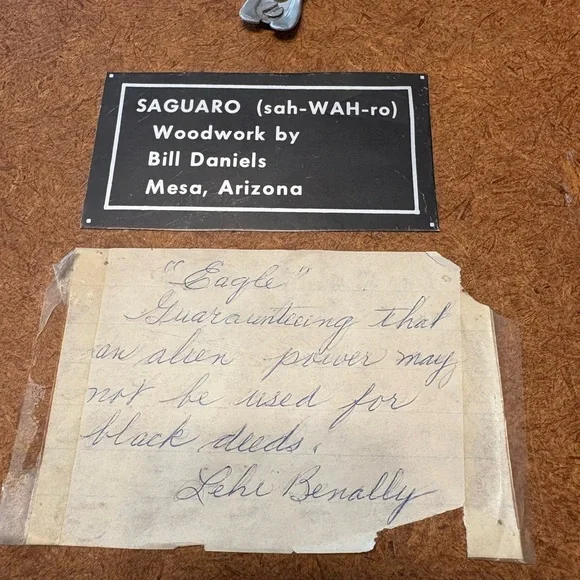 SAGUARO (sah-WAH-ro)
Woodwork by
Bill Daniels
Mesa, Arizona
"Eagle"
Guaraunticing that
an alien power may
not be used for
black deeds.
Lehi Benally